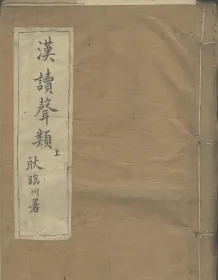 漢讀聲類
上
耿臨川署